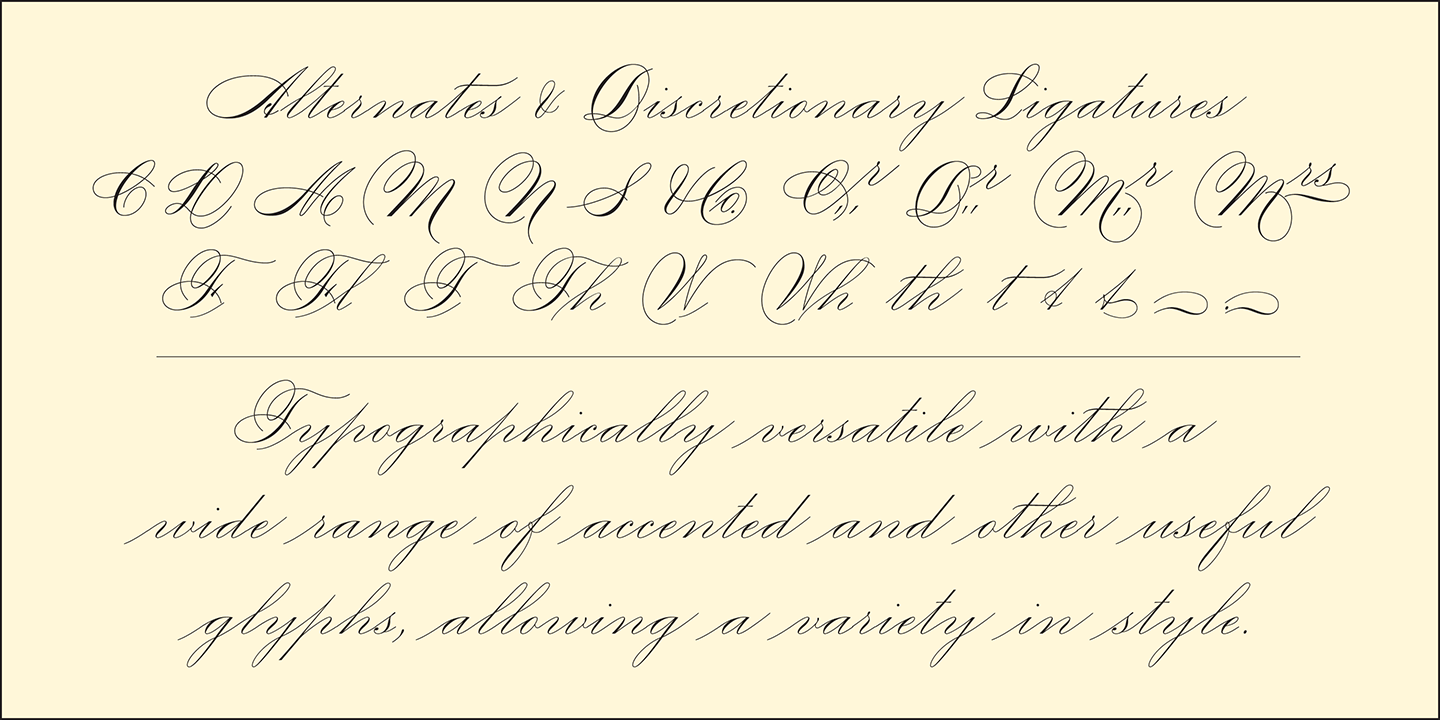 Alternates & Discretionary Ligatures
C D M M N S &Co. Dr Mr Mrs
F Fl T Th W Wh th t
Typographically versatile with a
wide range of accented and other useful
glyphs, allowing a variety in style.